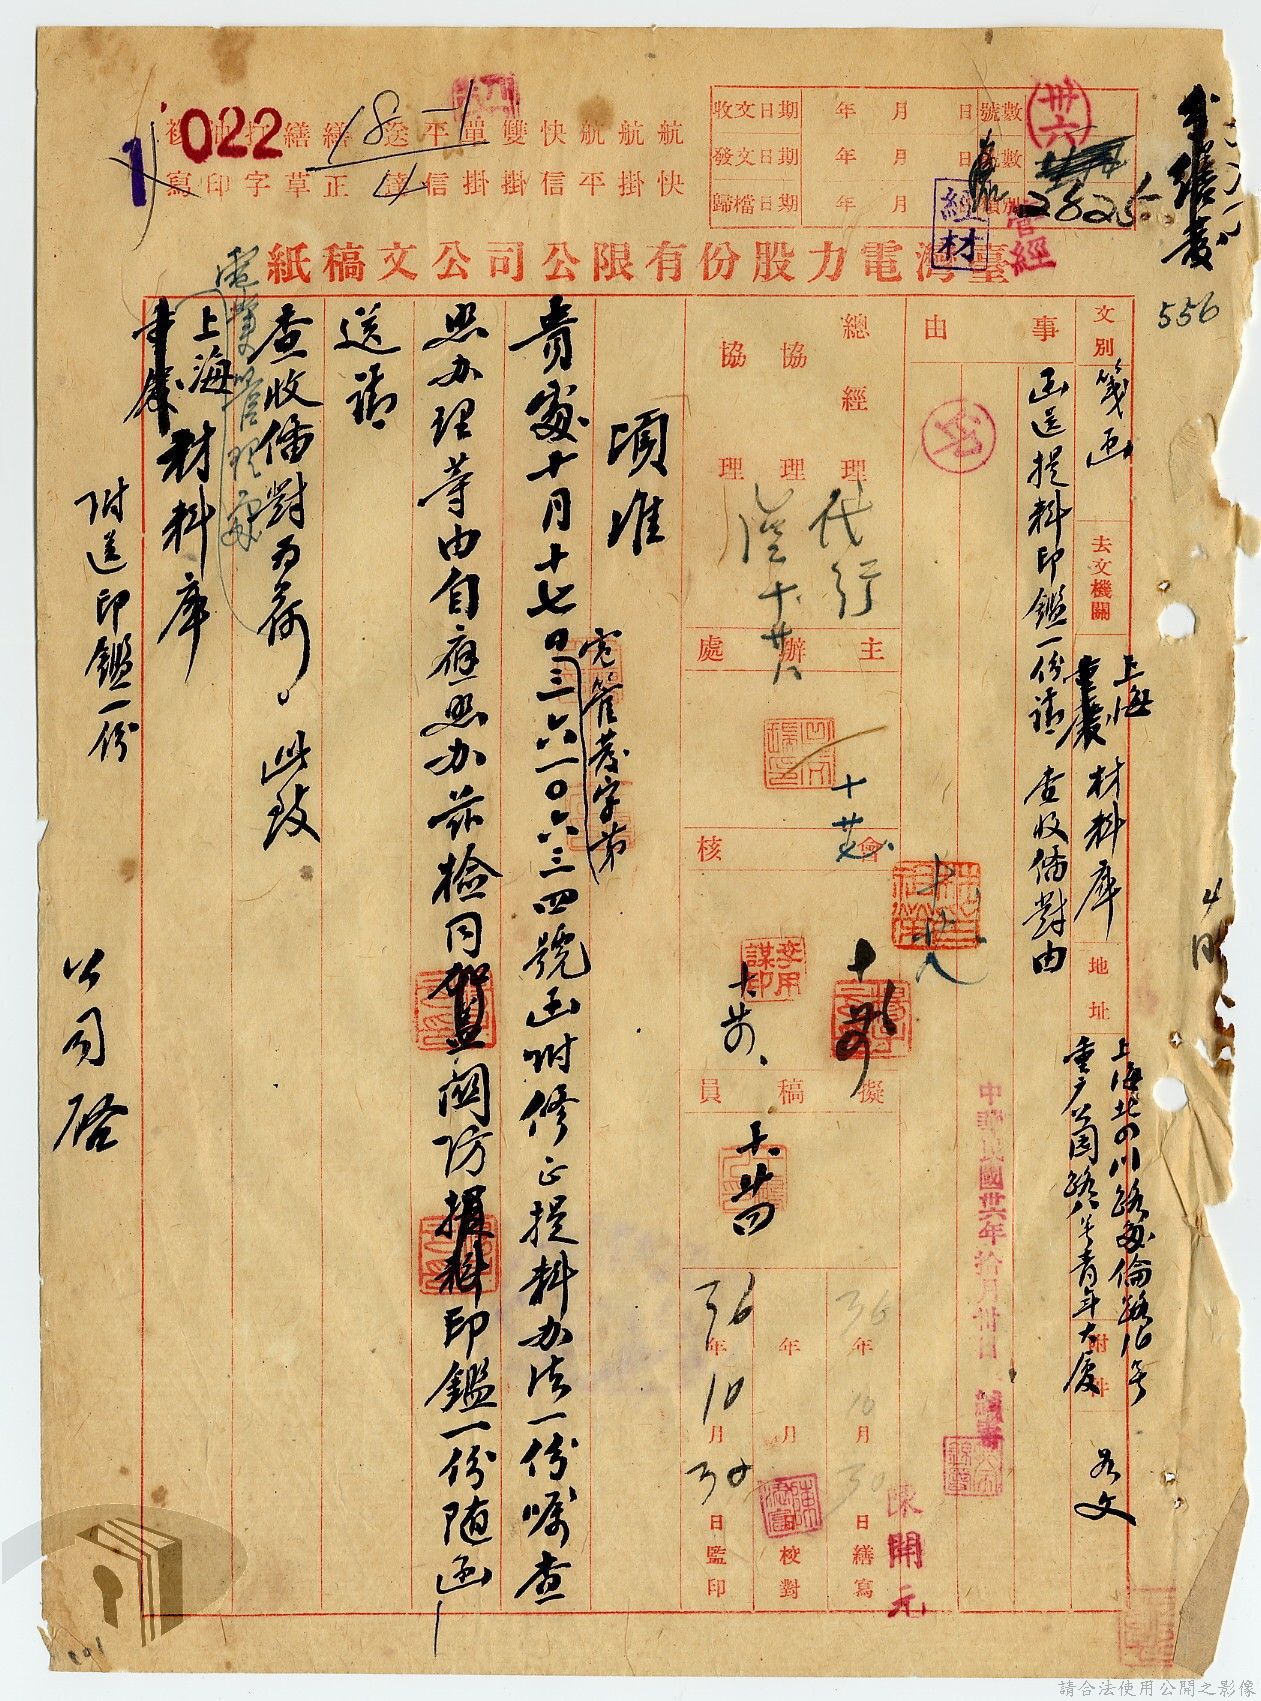 022
18-1
4
航航航快雙單平送繕繕打
快掛掛平信掛掛信達正草字印寫
收文日期 年 月 日 號數
發文日期 年 月 日 號數
歸檔日期 年 月
卅六
2825
經材
管經
556
臺灣電力股份有限公司公文稿紙
文別 箋函
去文機關 上海 重慶 材料庫
地址 上海北四川路
附件 如文
事由
函送提料印鑑一份請 查收備對由
總經理
協理
協理
代行
主辦處
會核
擬稿員
李用謀印
中華民國卅六年拾月卅日
36年10月30日繕寫
年 月 日校對
36年10月30日監印
陳開元
頃准
電管業字第
貴處十月十七日三六一〇六三四號函附修正提料办法一份囑查
照办理等由自應照办茲檢同賀益關防提料印鑑一份隨函
送請
查收備對為荷。此致
電業管理處
上海
重慶
材料庫
附送印鑑一份
公司啓
請合法使用公開之影像